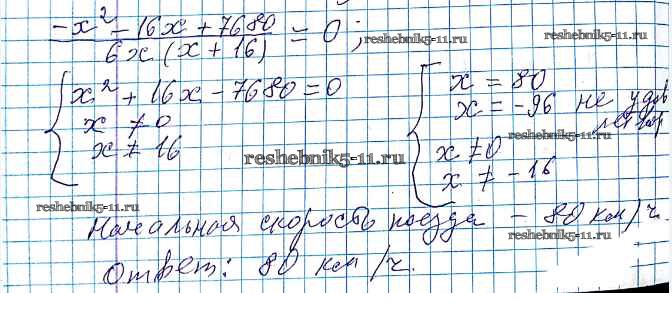 (-x² - 16x + 7680) / (6x(x + 16)) = 0;
reshebnik5-11.ru
reshebnik5-11.ru
{ x² + 16x - 7680 = 0
x ≠ 0
x ≠ 16
[ x = 80
x = -96 не удов
летвор
x ≠ 0
x ≠ -16
reshebnik5-11.ru
reshebnik5-11.ru
reshebnik5-11.ru
Начальная скорость поезда - 80 км/ч.
reshebnik5-11.ru
Ответ: 80 км/ч.